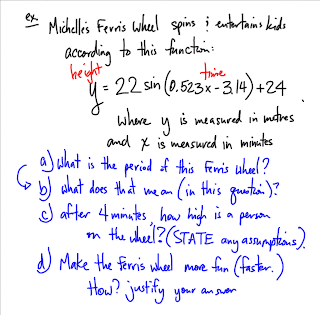 ex Michelle's Ferris Wheel spins & entertains kids
according to this function:
height time
y = 22 sin (0.523x - 3.14) + 24
where y is measured in metres
and x is measured in minutes
a) What is the period of this Ferris wheel?
b) what does that mean (in this question)?
c) after 4 minutes, how high is a person
on the wheel? (STATE any assumptions).
d) Make the Ferris wheel more fun (faster.)
How? justify your answer